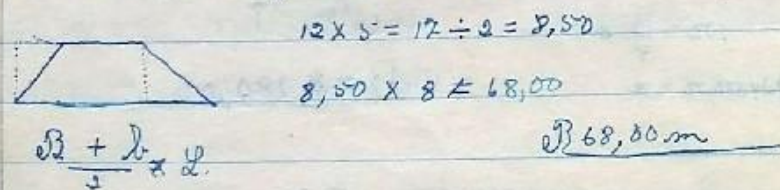 12 x 5 = 17 ÷ 2 = 8,50
8,50 x 8 = 68,00
B + b x L.
2
R 68,00 m